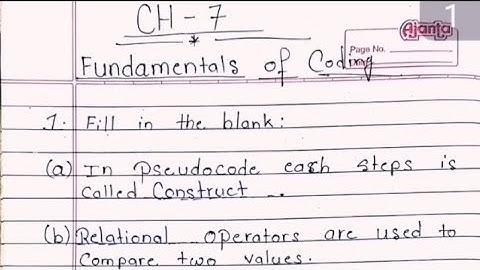 1
CH - 7
Ajanta
Page No.
Fundamentals of Coding
1. Fill in the blank:
(a) In Pseudocode each steps is
called Construct.
(b) Relational operators are used to
Compare two values.